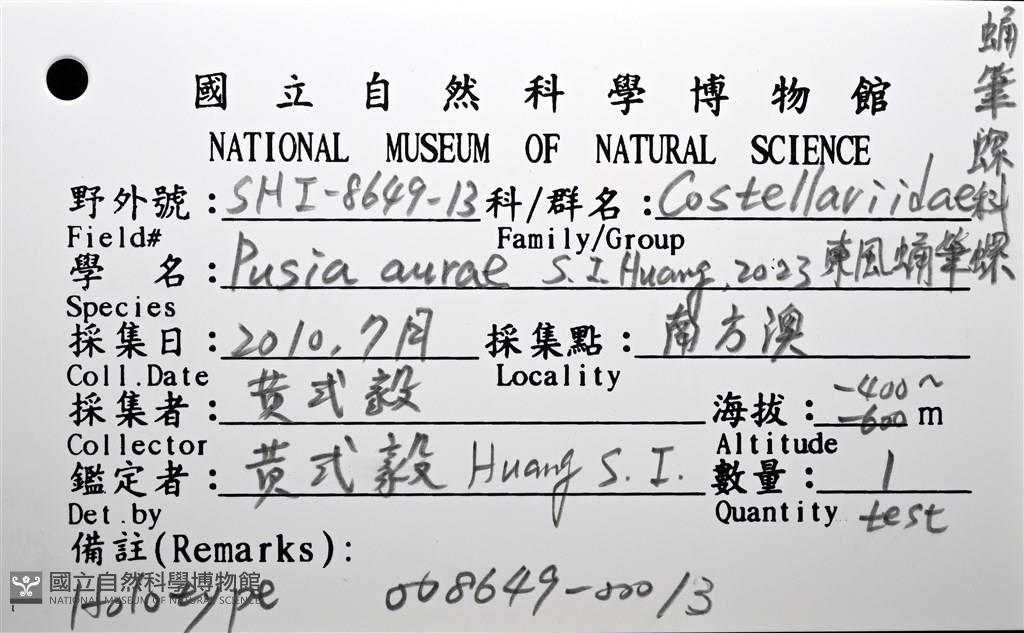 國立自然科學博物館
NATIONAL MUSEUM OF NATURAL SCIENCE
蛹筆螺科
野外號：SHI-8649-13 科/群名：Costellariidae
Field# Family/Group
學 名：Pusia aurae S.I.Huang, 2023 東風蛹筆螺
Species
採集日：2010, 7月 採集點：南方澳
Coll.Date Locality
採集者：黃式毅 海拔：-400~-600 m
Collector Altitude
鑑定者：黃式毅 Huang S. I. 數量：1
Det.by Quantity test
備註(Remarks)：
Holotype 008649-00013
國立自然科學博物館
NATIONAL MUSEUM OF NATURAL SCIENCE